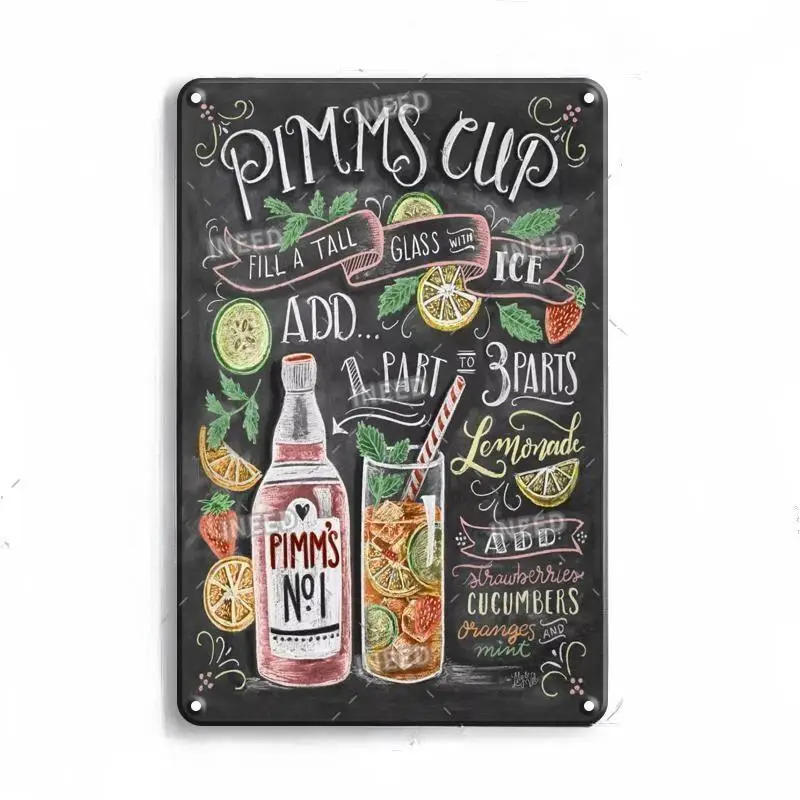 INEED
PIMMS CUP
INEED
INEED
FILL A TALL GLASS WITH ICE
ADD...
1 PART TO 3 PARTS
INEED
Lemonade
INEED
INEED
PIMM'S
Nº1
ADD
strawberries
CUCUMBERS
oranges AND
mint
INEED